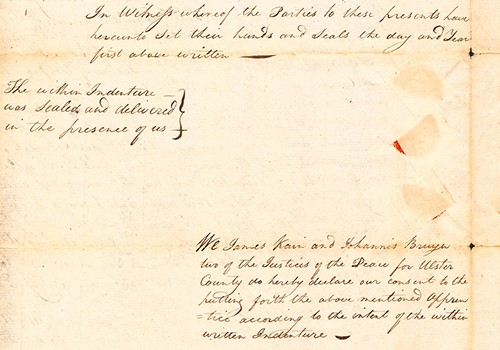 In Witness whereof the Parties to these presents have
hereunto set their hands and seals the day and Year
first above written —
The within Indenture —
was sealed and delivered
in the presence of us —
We James Kain and Johannis Bruyn
two of the Justices of the Peace for Ulster
County do hereby declare our consent to the
putting forth the above mentioned Appren
=tice according to the intent of the within
written Indenture —